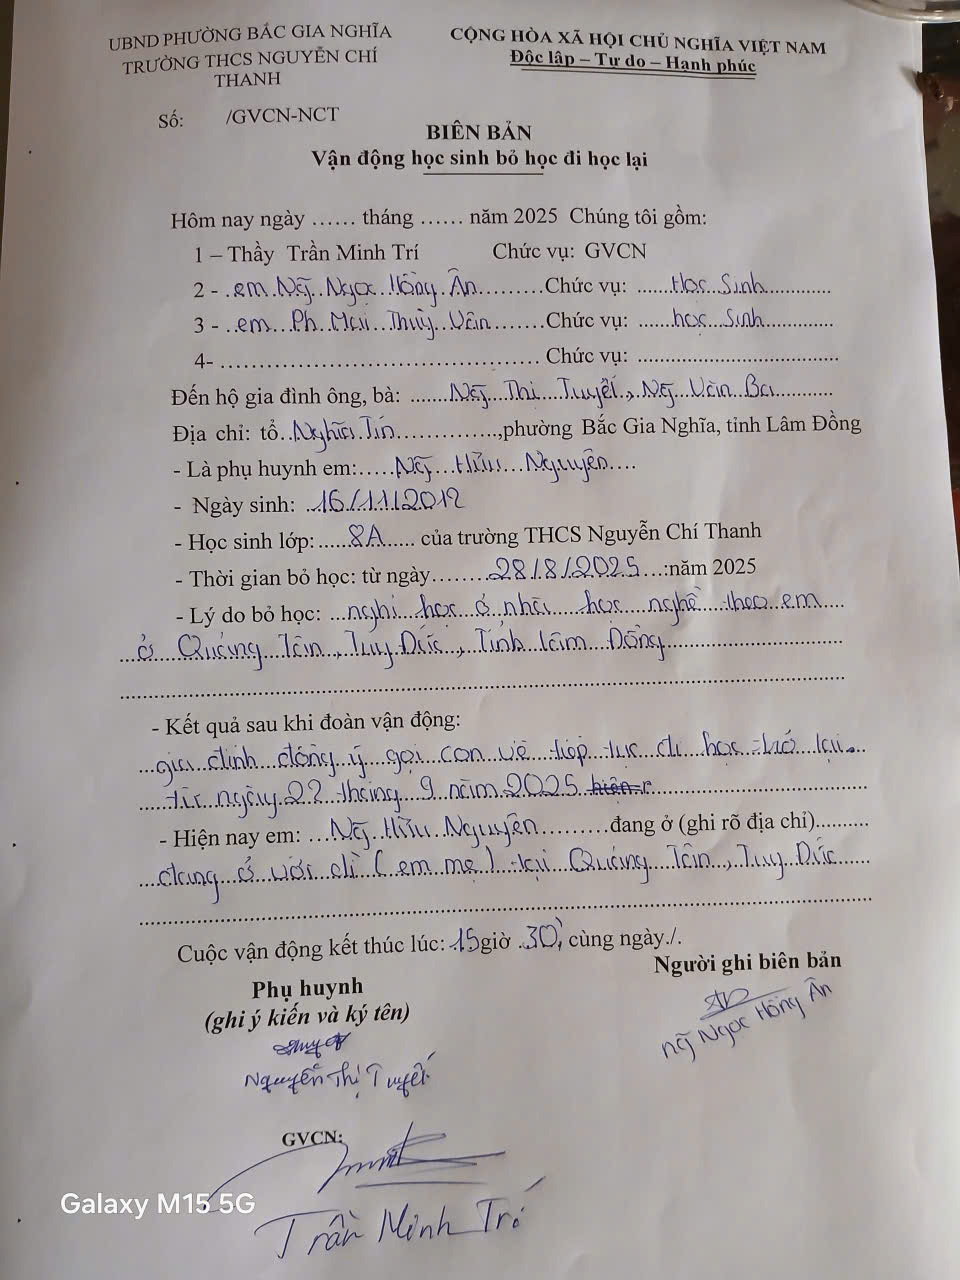 UBND PHƯỜNG BẮC GIA NGHĨA
TRƯỜNG THCS NGUYỄN CHÍ
THANH
CỘNG HÒA XÃ HỘI CHỦ NGHĨA VIỆT NAM
Độc lập – Tự do – Hạnh phúc
Số: /GVCN-NCT
BIÊN BẢN
Vận động học sinh bỏ học đi học lại
Hôm nay ngày ...... tháng ...... năm 2025 Chúng tôi gồm:
1 – Thầy Trần Minh Trí Chức vụ: GVCN
2 - em Ng̃ Ngọc Hồng Ân Chức vụ: Học Sinh
3 - em Ph. Mai Thuỳ Vân Chức vụ: học Sinh
4- Chức vụ:
Đến hộ gia đình ông, bà: Ng̃ Thị Tuyết, Ng̃ Văn Ba
Địa chỉ: tổ Nghĩa Tín, phường Bắc Gia Nghĩa, tỉnh Lâm Đồng
- Là phụ huynh em: Ng̃ Hữu Nguyên
- Ngày sinh: 16/11/2012
- Học sinh lớp: 8A của trường THCS Nguyễn Chí Thanh
- Thời gian bỏ học: từ ngày 28/8/2025 :năm 2025
- Lý do bỏ học: nghỉ học ở nhà học nghề theo em
ở Quảng Tân, Tuy Đức, Tỉnh Lâm Đồng
- Kết quả sau khi đoàn vận động:
gia đình đồng ý gọi con về tiếp tục đi học trở lại.
từ ngày 22 tháng 9 năm 2025
- Hiện nay em: Ng̃ Hữu Nguyên đang ở (ghi rõ địa chỉ)
đang ở với dì (em mẹ) tại Quảng Tân, Tuy Đức
Cuộc vận động kết thúc lúc: 15 giờ 30', cùng ngày./.
Phụ huynh
(ghi ý kiến và ký tên)
Nguyễn Thị Tuyết
Người ghi biên bản
Ng̃ Ngọc Hồng Ân
GVCN:
Trần Minh Trí
Galaxy M15 5G